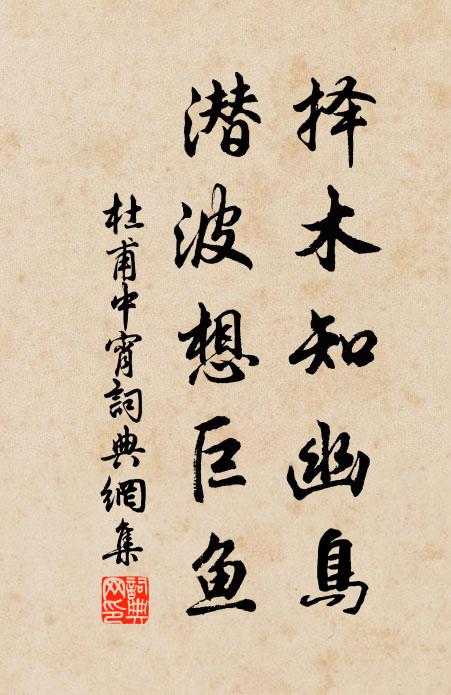 择木知幽鸟
潜波想巨鱼
杜甫中宵詞典網集
詞典
网印